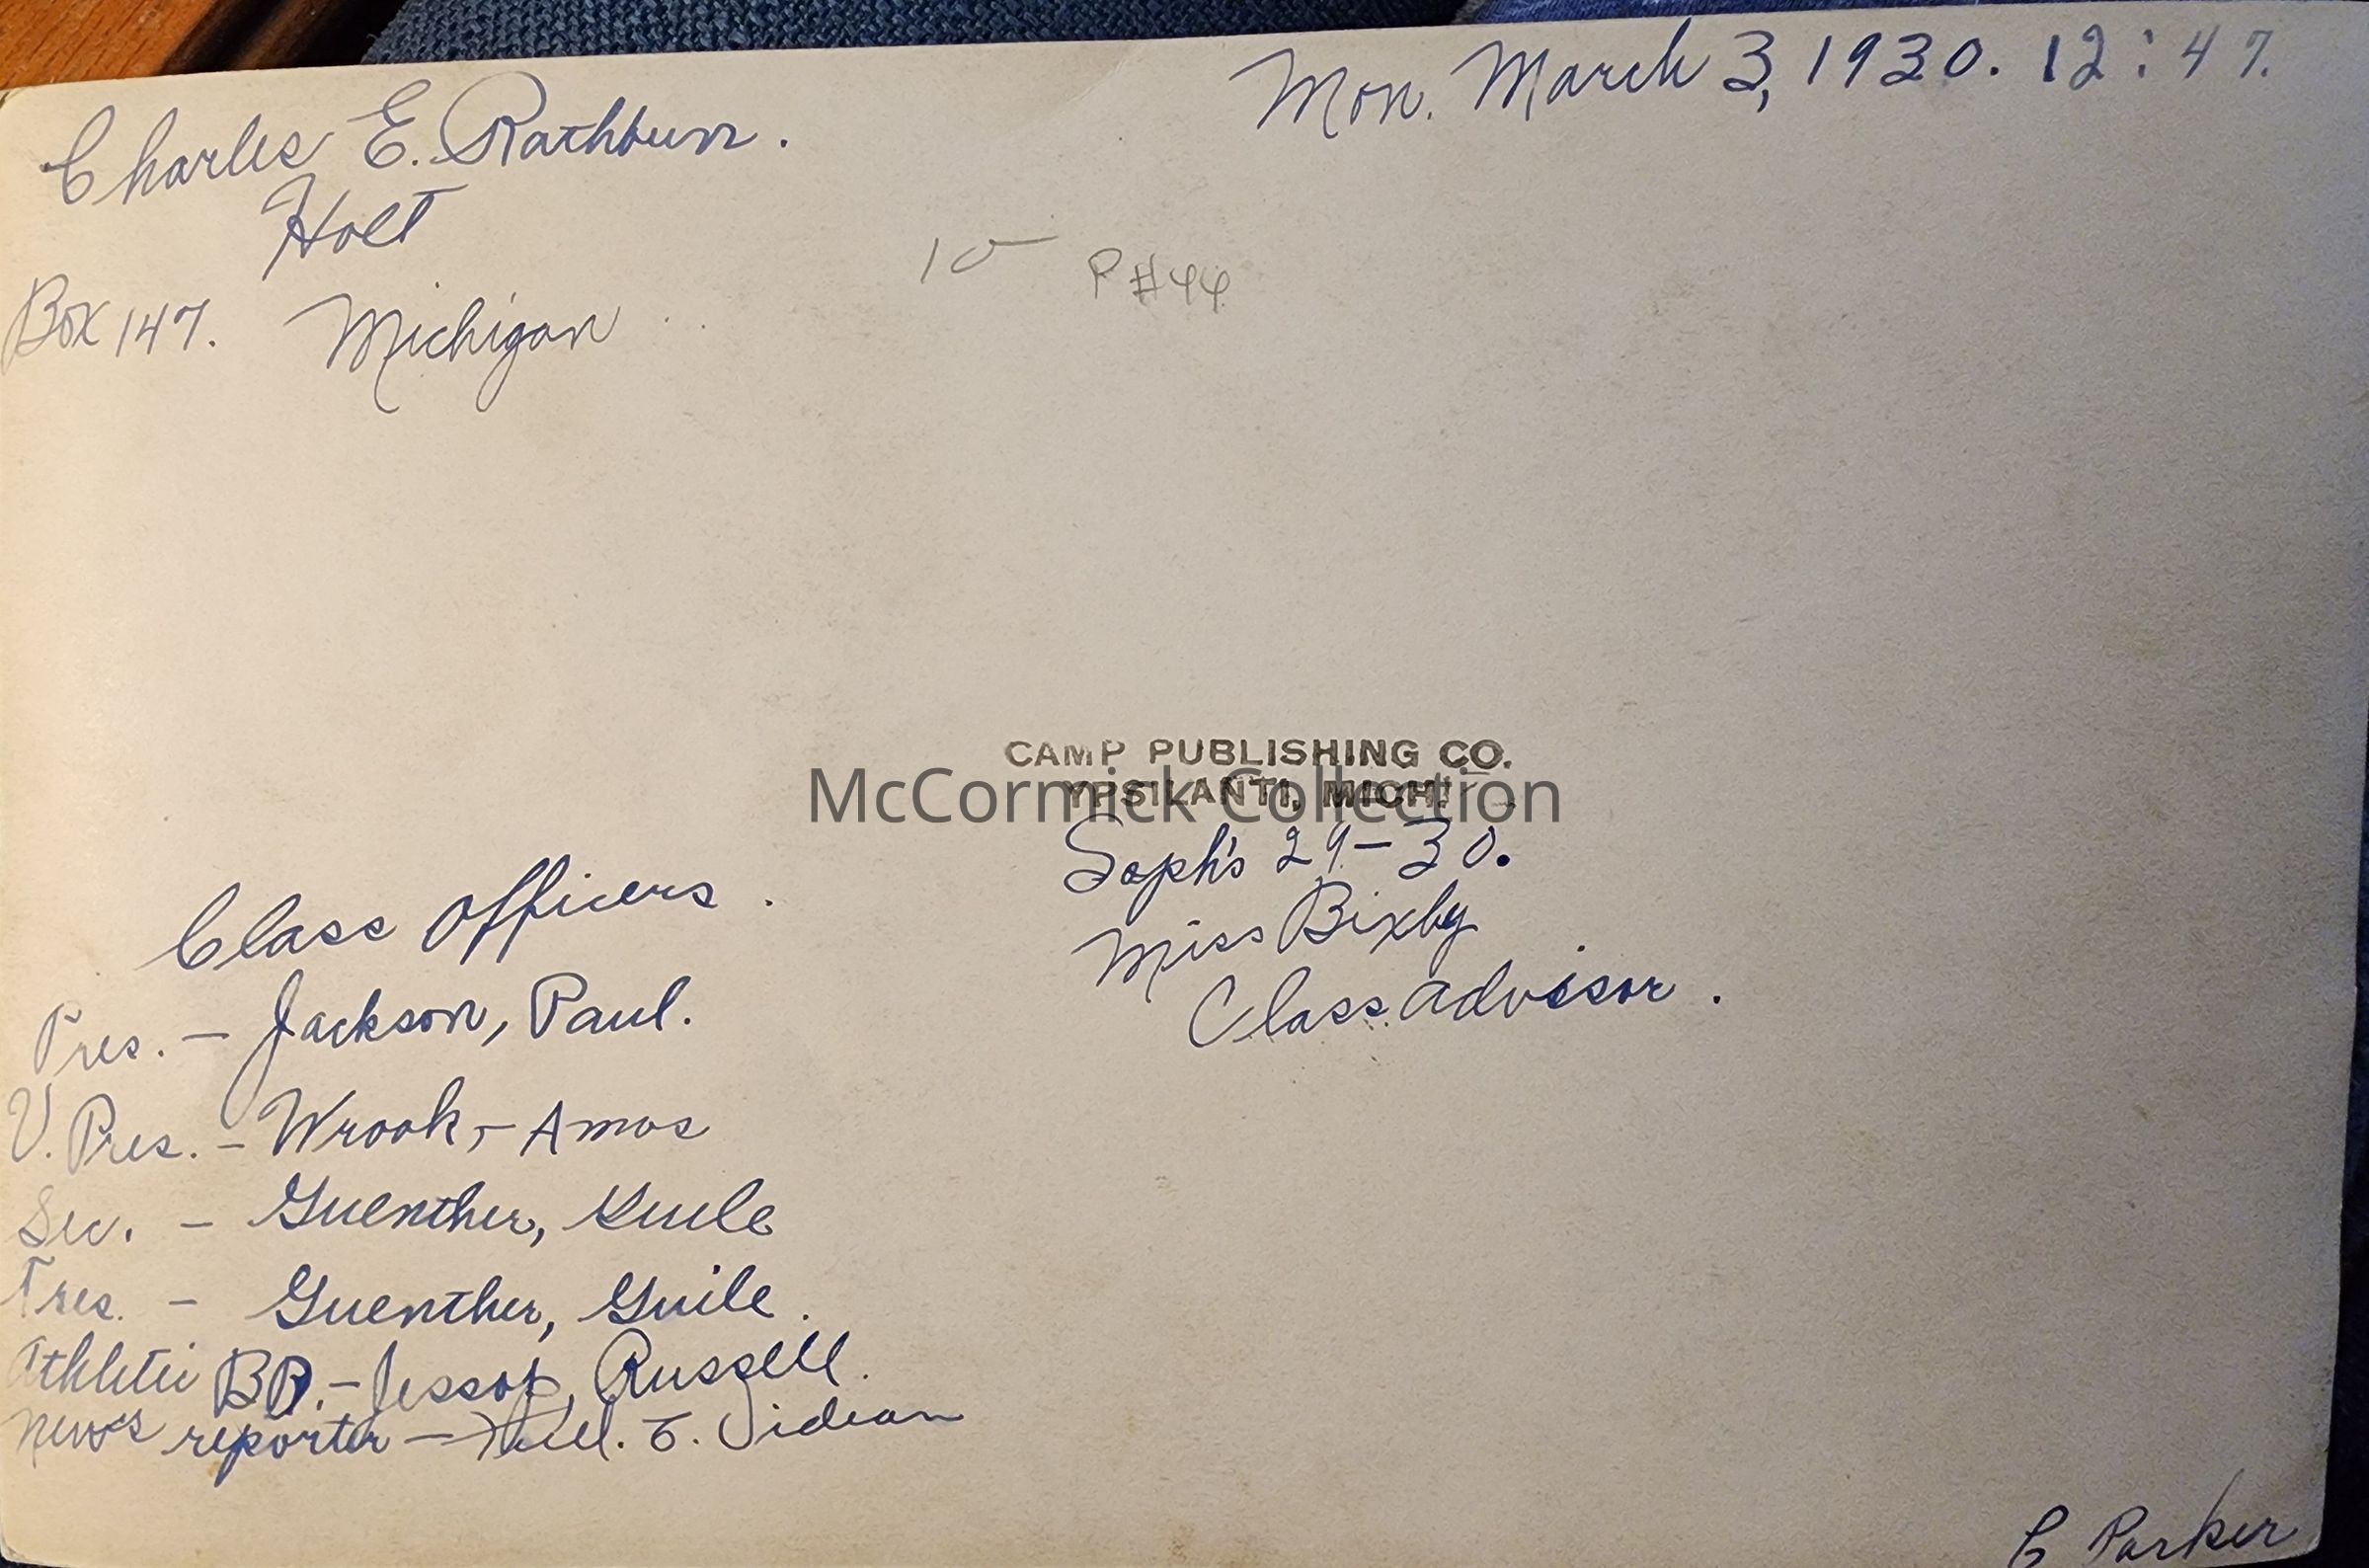 Mon. March 3, 1930. 12:47.
Charles E. Rathbun.
Holt
Box 147. Michigan
10 P#44
CAMP PUBLISHING CO.
YPSILANTI, MICH.
McCormick Collection
Soph's 29-30.
Miss Bixby
Class advisor.
Class Officers.
Pres. - Jackson, Paul.
V. Pres. - Wrook, - Amos
Sec. - Guenther,
Tres. - Guenther, Guile.
Athletic BD. - Jessop, Russell.
News reporter - E. Videan
C Parker